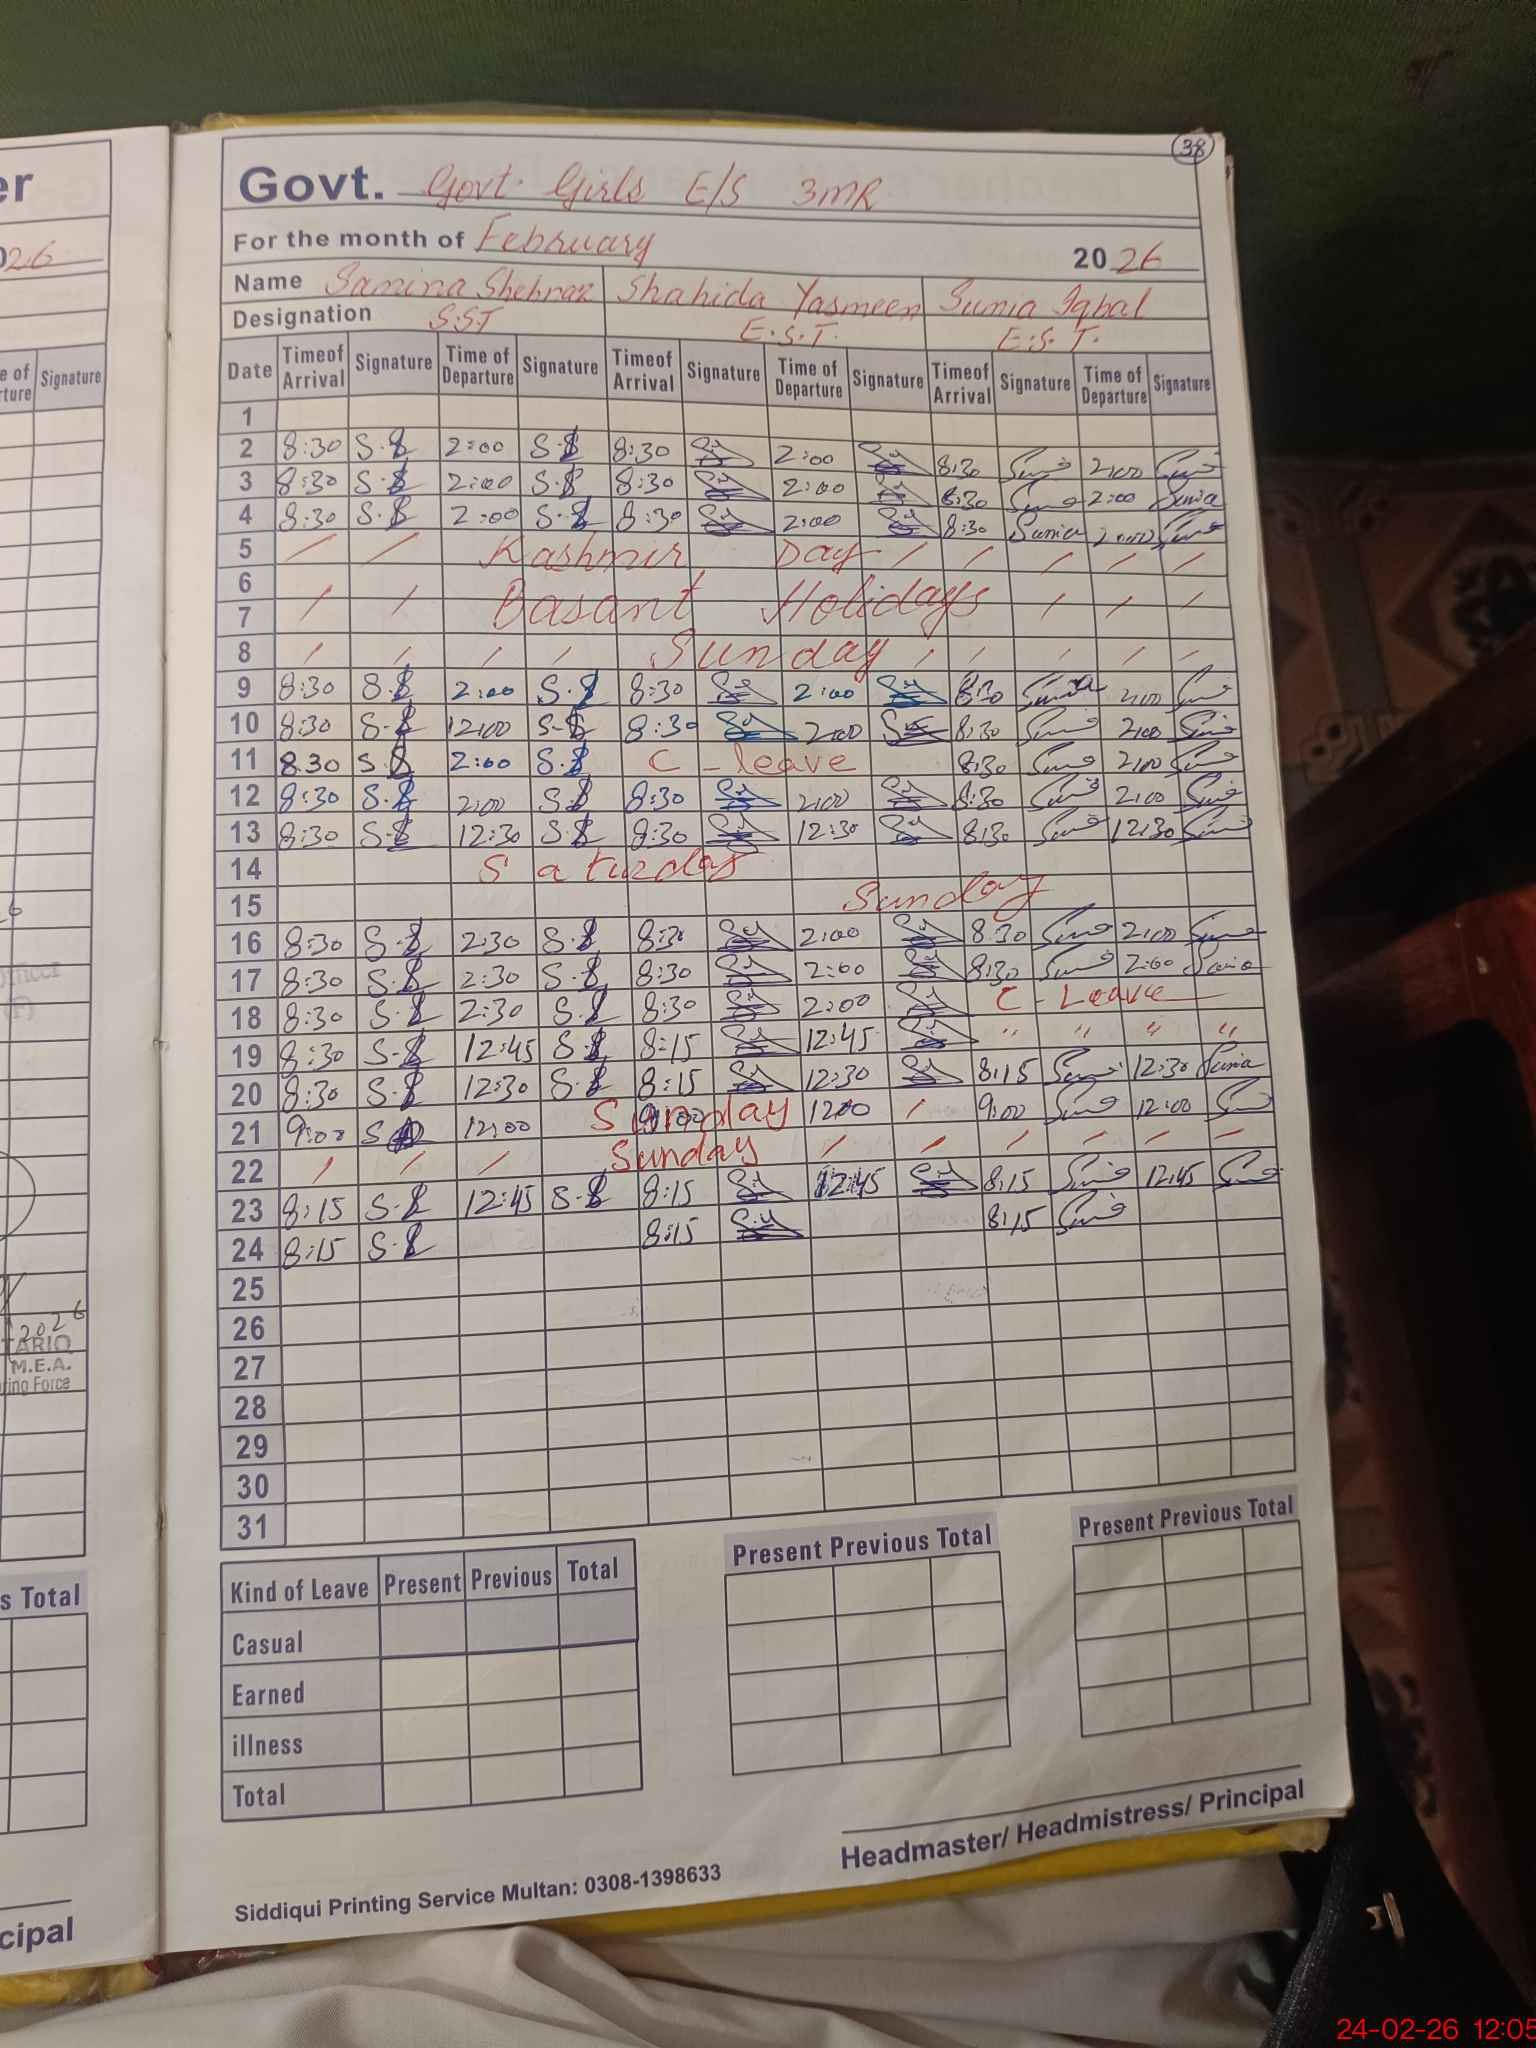 er
026
e of
rture Signature
2026
TARIQ
M.E.A.
ring Force
s Total
cipal
38
Govt. Govt. Girls E/S 3MR
For the month of February 2026
Name Samina Shehraz Shahida Yasmeen Sunia Iqbal
Designation S.S.T E.S.T. E.S.T.
Date Timeof Arrival Signature Time of Departure Signature Timeof Arrival Signature Time of Departure Signature Timeof Arrival Signature Time of Departure Signature
1
2 8:30 S.S 2:00 S.S 8:30 2:00 8:30 2:00
3 8:30 S.S 2:00 S.S 8:30 2:00 8:30 2:00 Sunia
4 8:30 S.S 2:00 S.S 8:30 2:00 8:30 Sunia 2:00
5 / / Kashmir Day / / / / /
6
7 / / Basant Holidays / / /
8 / / / / Sunday / / / / /
9 8:30 S.S 2:00 S.S 8:30 2:00 8:30 Sunia 2:00
10 8:30 S-S 12:00 S-S 8:30 2:00 8:30 2:00
11 8:30 S.S 2:00 S.S C-leave 8:30 2:00
12 8:30 S.S 2:00 S.S 8:30 2:00 8:30 2:00
13 8:30 S-S 12:30 S.S 8:30 12:30 8:30 12:30
14 Saturday
15 Sunday
16 8:30 S-S 2:30 S.S 8:30 2:00 8:30 2:00
17 8:30 S.S 2:30 S.S 8:30 2:00 8:30 2:00 Sunia
18 8:30 S.S 2:30 S.S 8:30 2:00 C-Leave
19 8:30 S-S 12:45 S.S 8:15 12:45 " " " "
20 8:30 S.S 12:30 S.S 8:15 12:30 8:15 12:30 Sunia
21 9:00 12:00 9:00 12:00 / 9:00 12:00
22 / / / Sunday / / / / / /
23 8:15 S.S 12:45 S.S 8:15 12:45 8:15 12:45
24 8:15 S.S 8:15 8:15
25
26
27
28
29
30
31
Kind of Leave Present Previous Total Present Previous Total Present Previous Total
Casual
Earned
illness
Total
Headmaster/ Headmistress/ Principal
Siddiqui Printing Service Multan: 0308-1398633
24-02-26 12:05